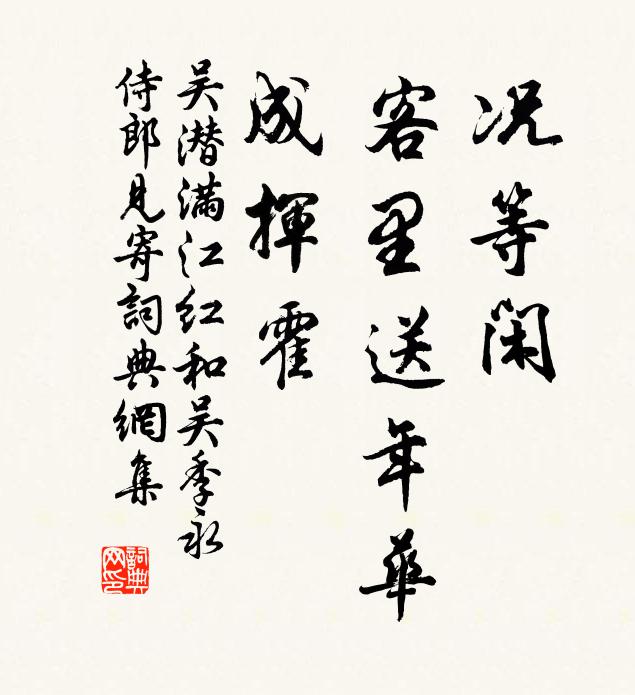 况等闲
客里送年華
成揮霍
吴潜满江红和吴季永
侍郎見寄詞典網集
詞典网印